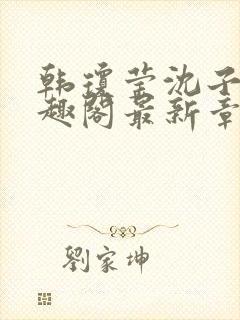 韩琼莹沈子
趣阁最新章
劉家坤